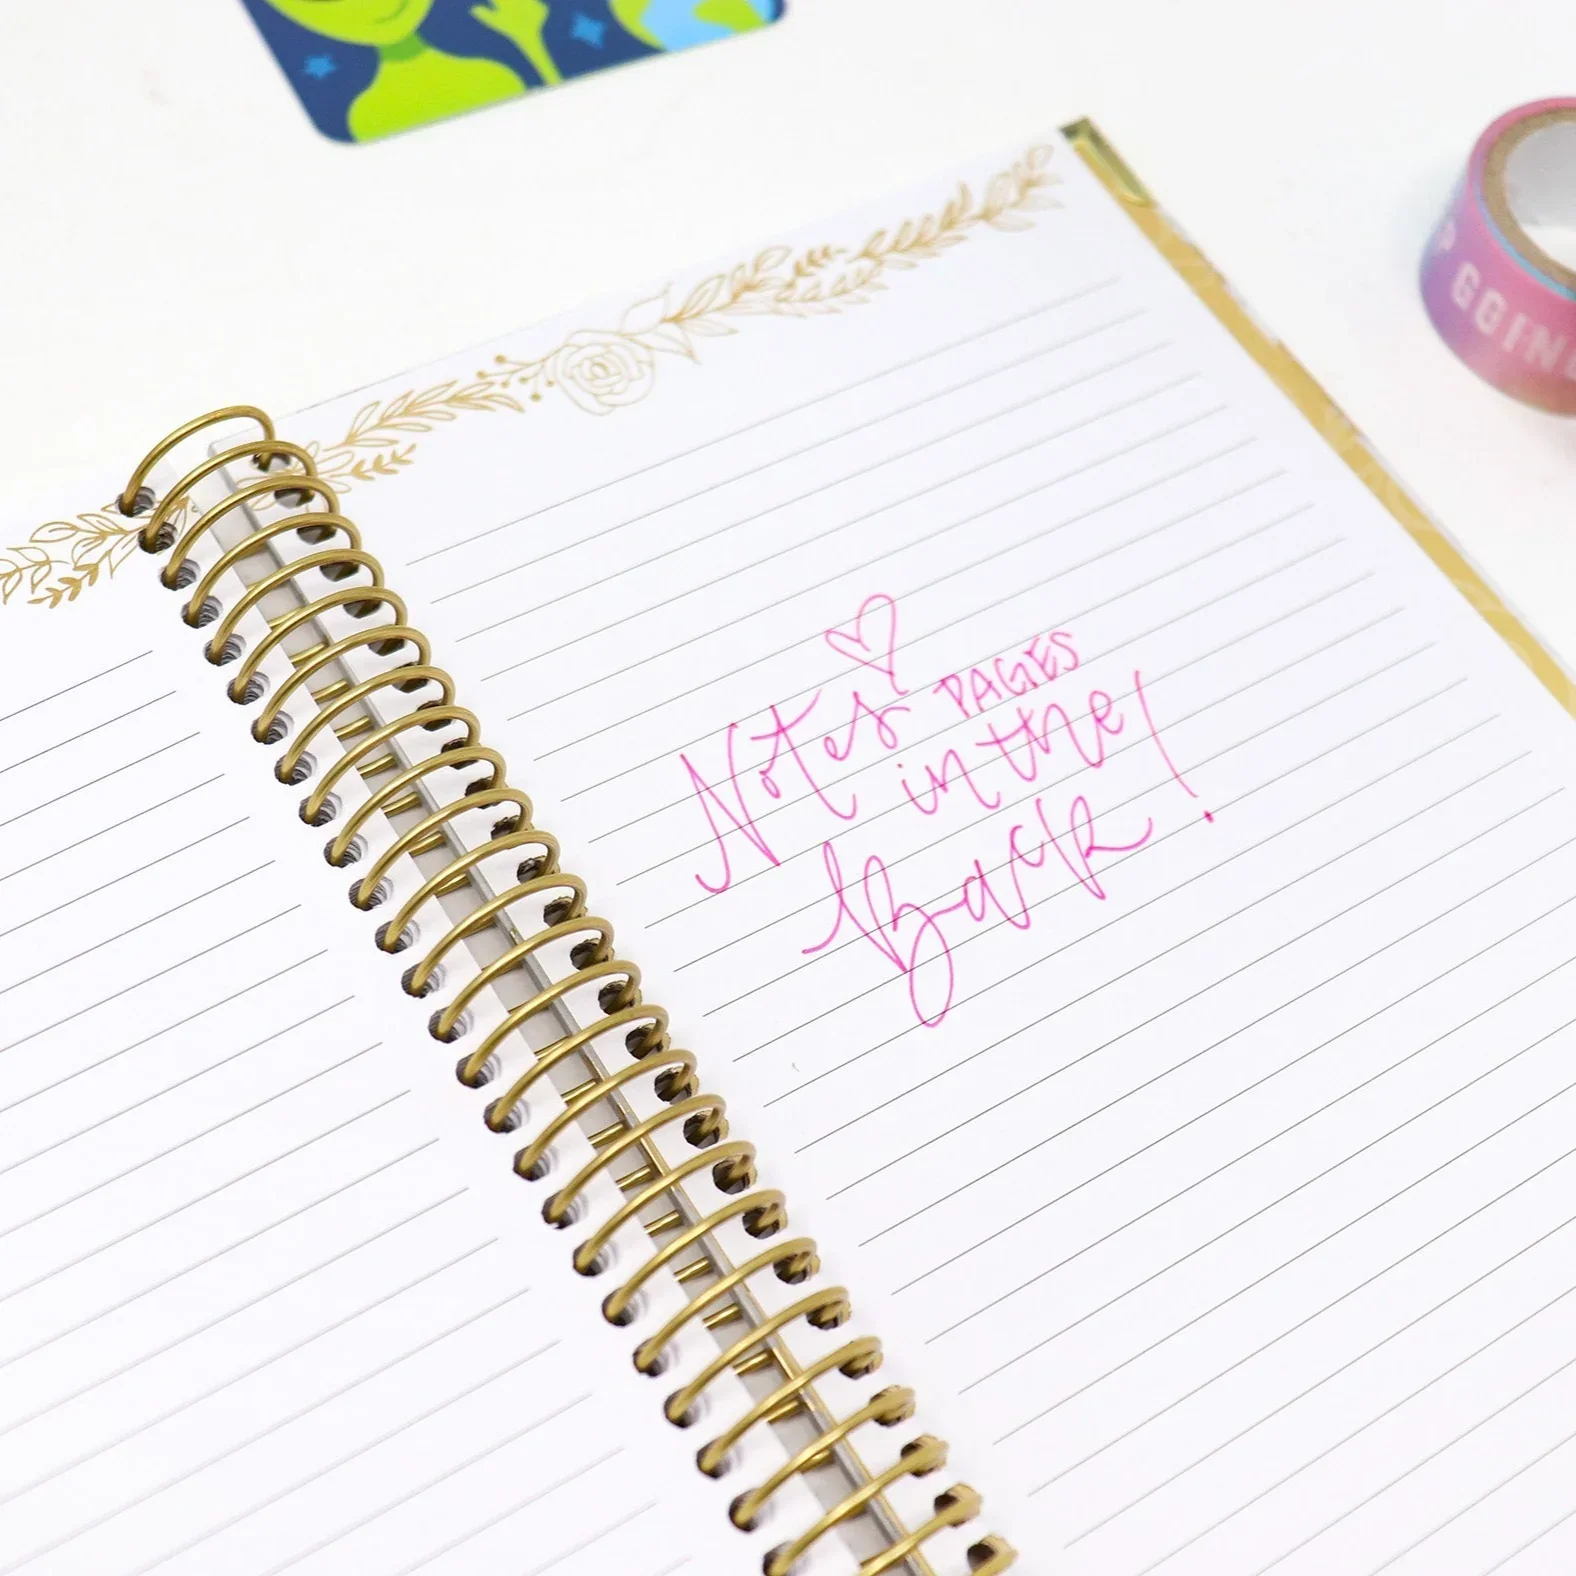 P GOIN
Notes PAGES
in the
Back!